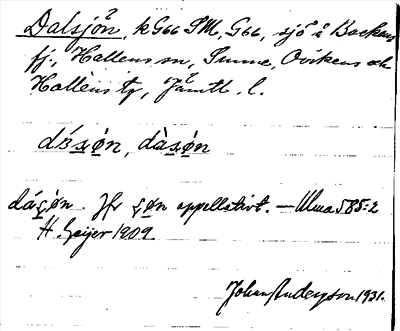 Dalsjön, k G66 SM, G66, sjö å Backens
fj., Hallens sn, Sunne, Ovikens och
Hallens tg, Jämtl. l.
dásøn, dàsøn
dáşøn. Jfr şøn appellativt. — Ulma 585:2
H. Geijer 1909
Johan Anderzson 1931.